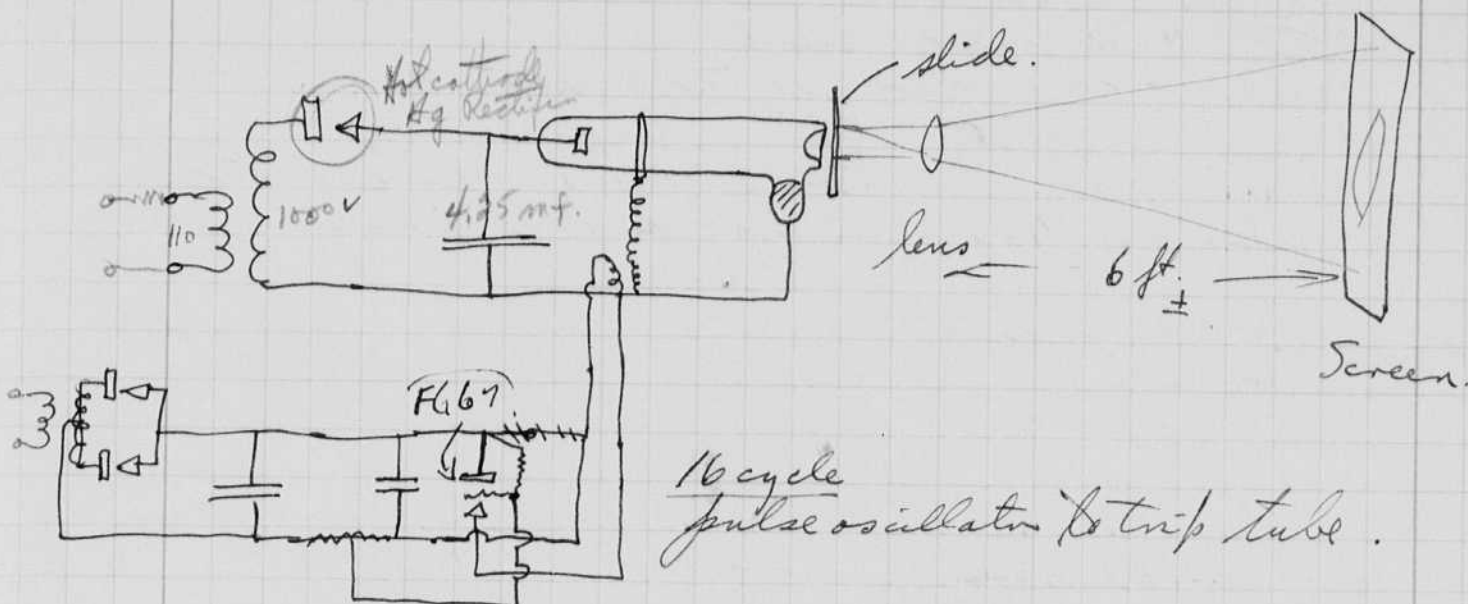 slide.
Hot cathode
Hg Rectifier
110
1000 V
4.25 mf.
lens
6 ft.
±
Screen.
FG67
16 cycle
pulse oscillator to trip tube.